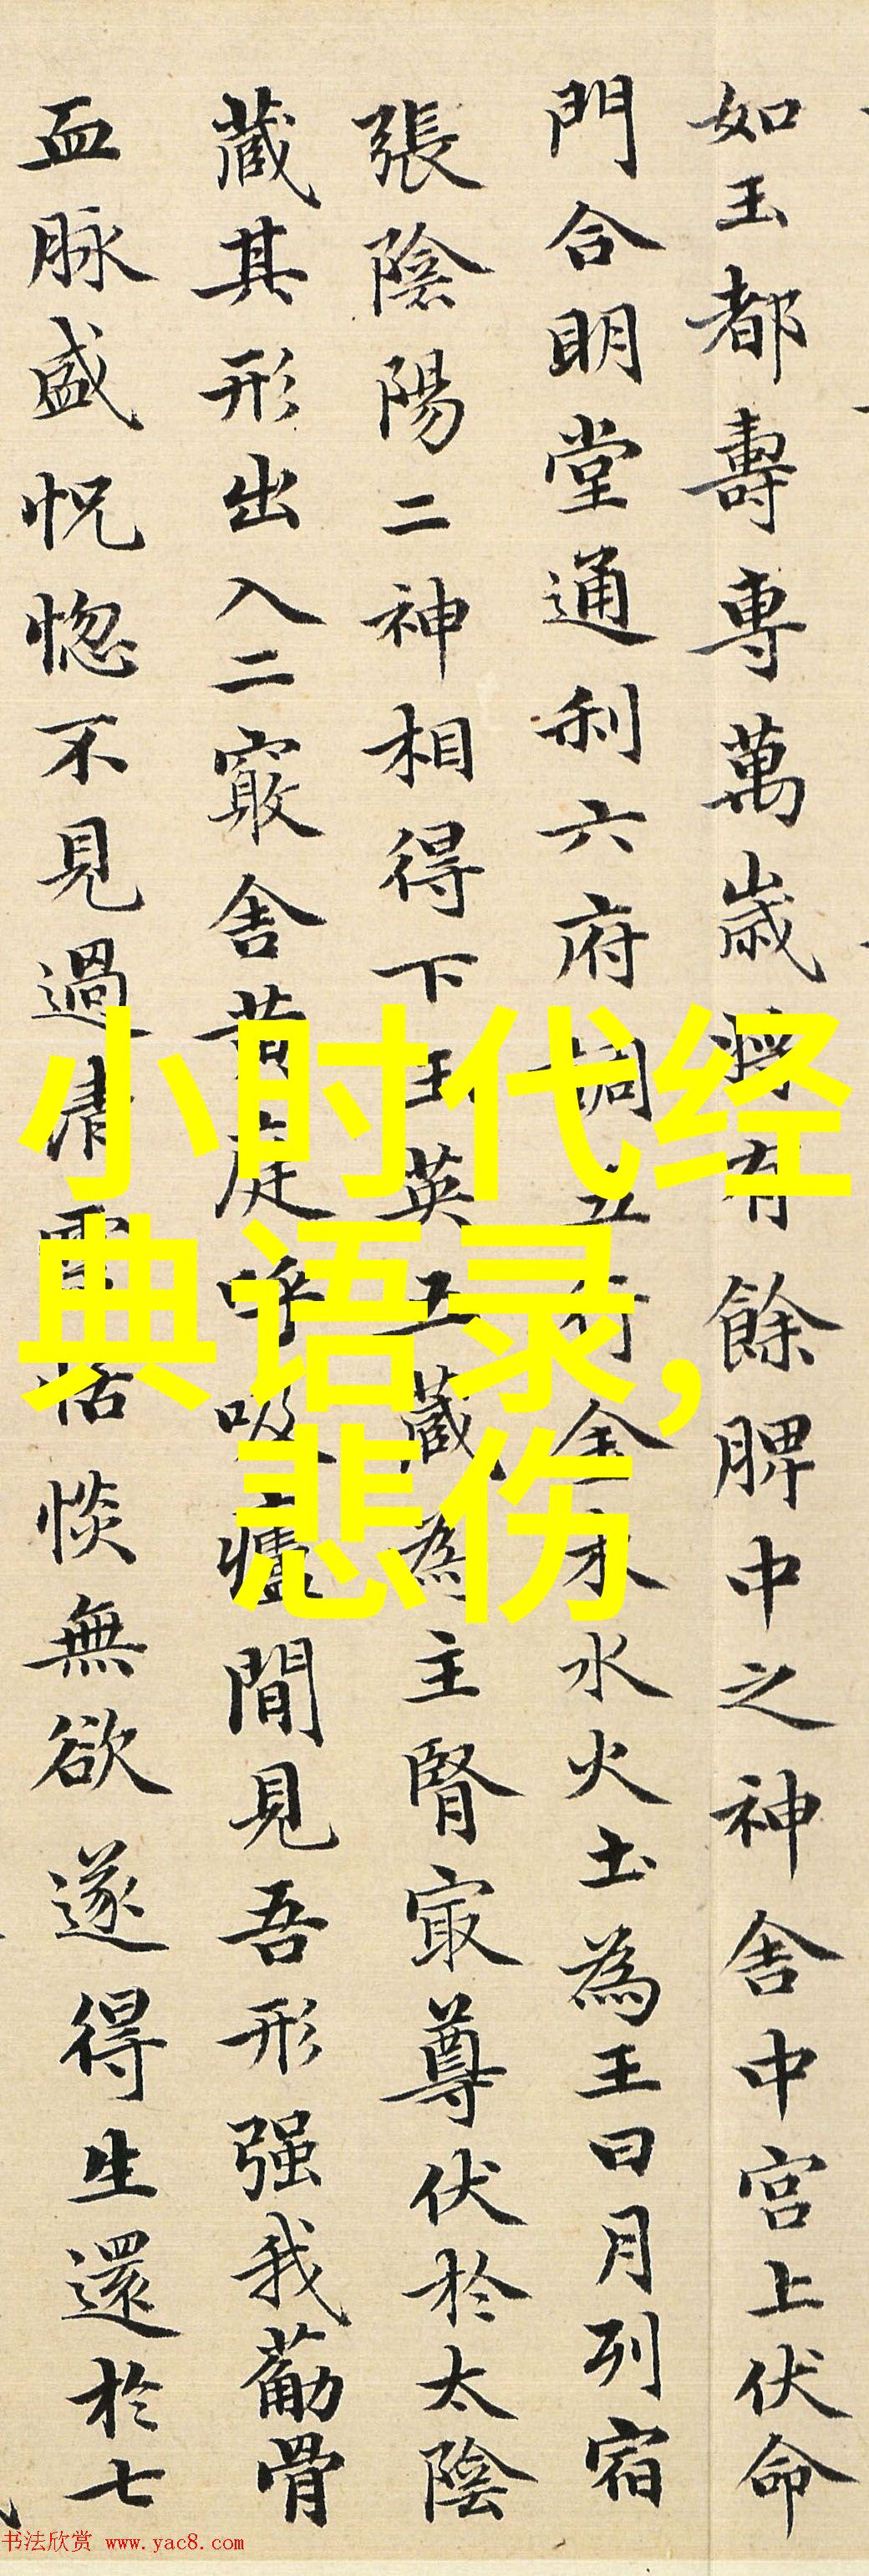 如玉都壽專萬歲將有餘脾中之神舍中宮上伏命
門合明堂通利六府調五行金木水火土為王日月列宿
張陰陽二神相得下玉英五藏為主腎寂尊伏於太陰
蔵其形出入二竅舍黃庭呼吸廬間見吾形强我葡骨
血脉盛怳惚不見過清靈恬惔無欲遂得生還於七
小时代经
典语录,
悲伤
书法欣赏 www.yac8.com